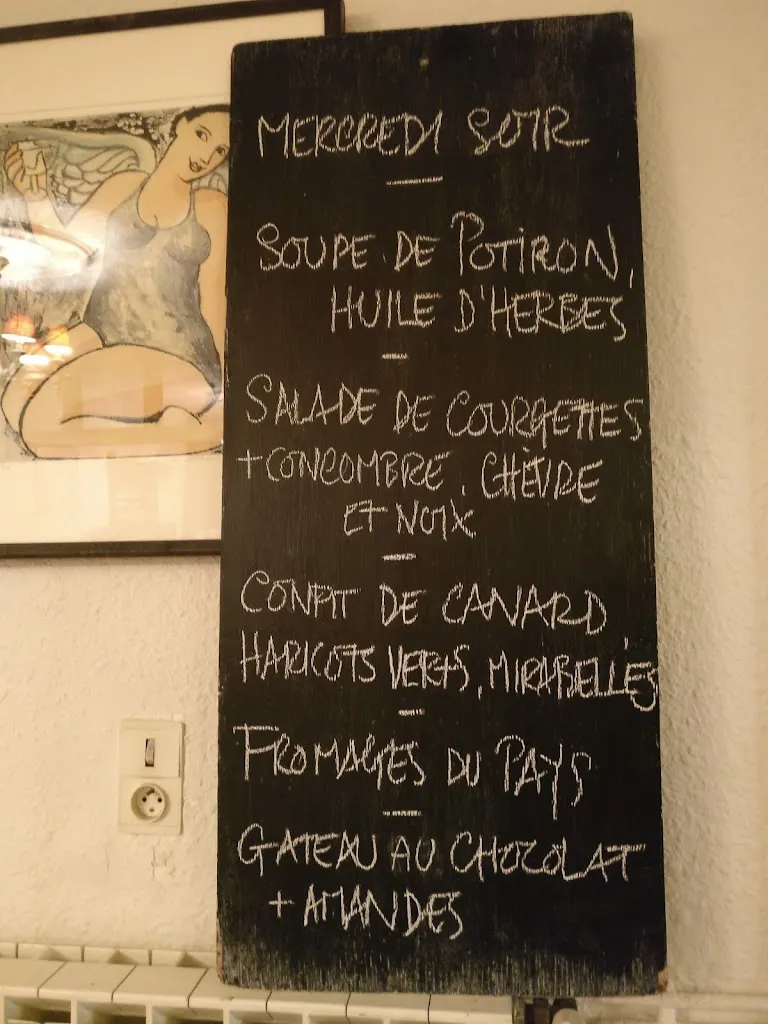 MERCREDI SOIR
SOUPE DE POTIRON,
HUILE D'HERBES
SALADE DE COURGETTES
+ CONCOMBRE, CHÈVRE
ET NOIX
CONFIT DE CANARD,
HARICOTS VERTS, MIRABELLES
FROMAGES DU PAYS
GATEAU AU CHOCOLAT
+ AMANDES